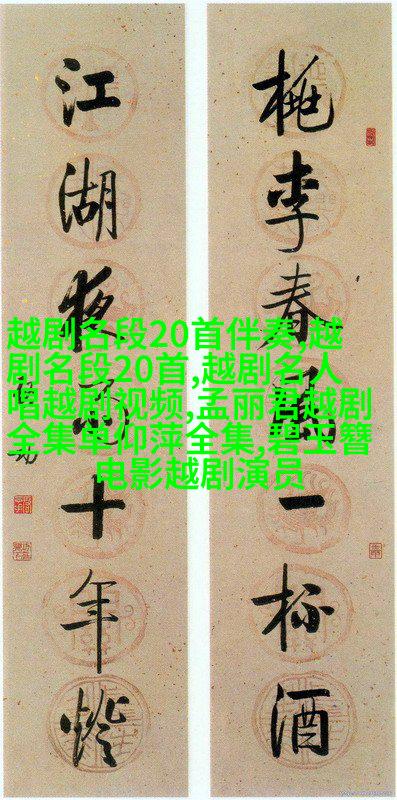 桃李春風一杯酒
江湖夜雨十年燈
越剧名段20首伴奏,越
剧名段20首,越剧名人
唱越剧视频,孟丽君越剧
全集单仰萍全集,碧玉簪
电影越剧演员